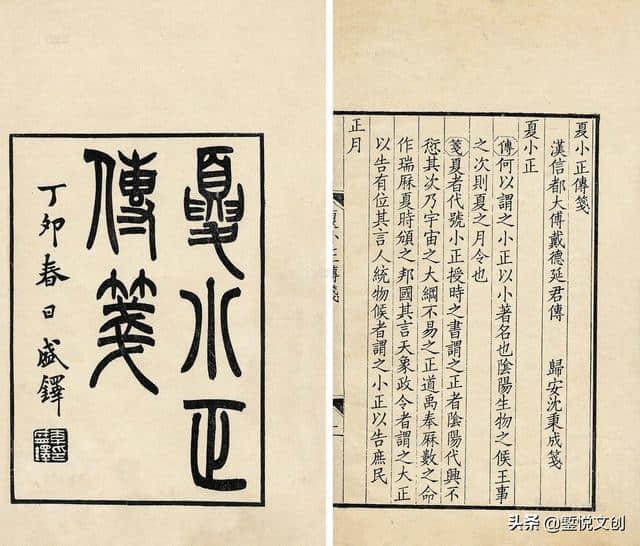 夏小正
傳箋
丁卯春日盛鐸
夏小正傳箋
漢信都大傅戴德延君傳 歸安沈秉成箋
夏小正
傳何以謂之小正以小著名也陰陽生物之候王事
之次則夏之月令也
箋夏者代號小正授時之書謂之正者陰陽代興不
愆其次乃宇宙之大綱不易之正道禹奉厤數之命
作瑞厤夏時頒之邦國其言天象政令者謂之大正
以告有位其言人統物候者謂之小正以告庶民
正月
头条 @鑒悦文创